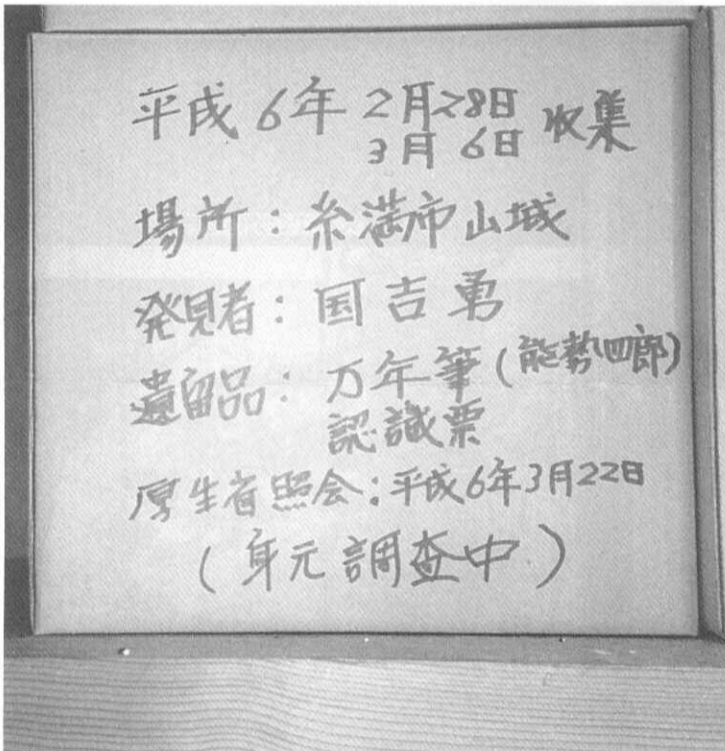 平成6年 2月28日 収集
3月6日
場所：糸満市山城
発見者：国吉勇
遺留品：万年筆(能勢四郎)
認識票
厚生省照会：平成6年3月22日
(身元調査中)